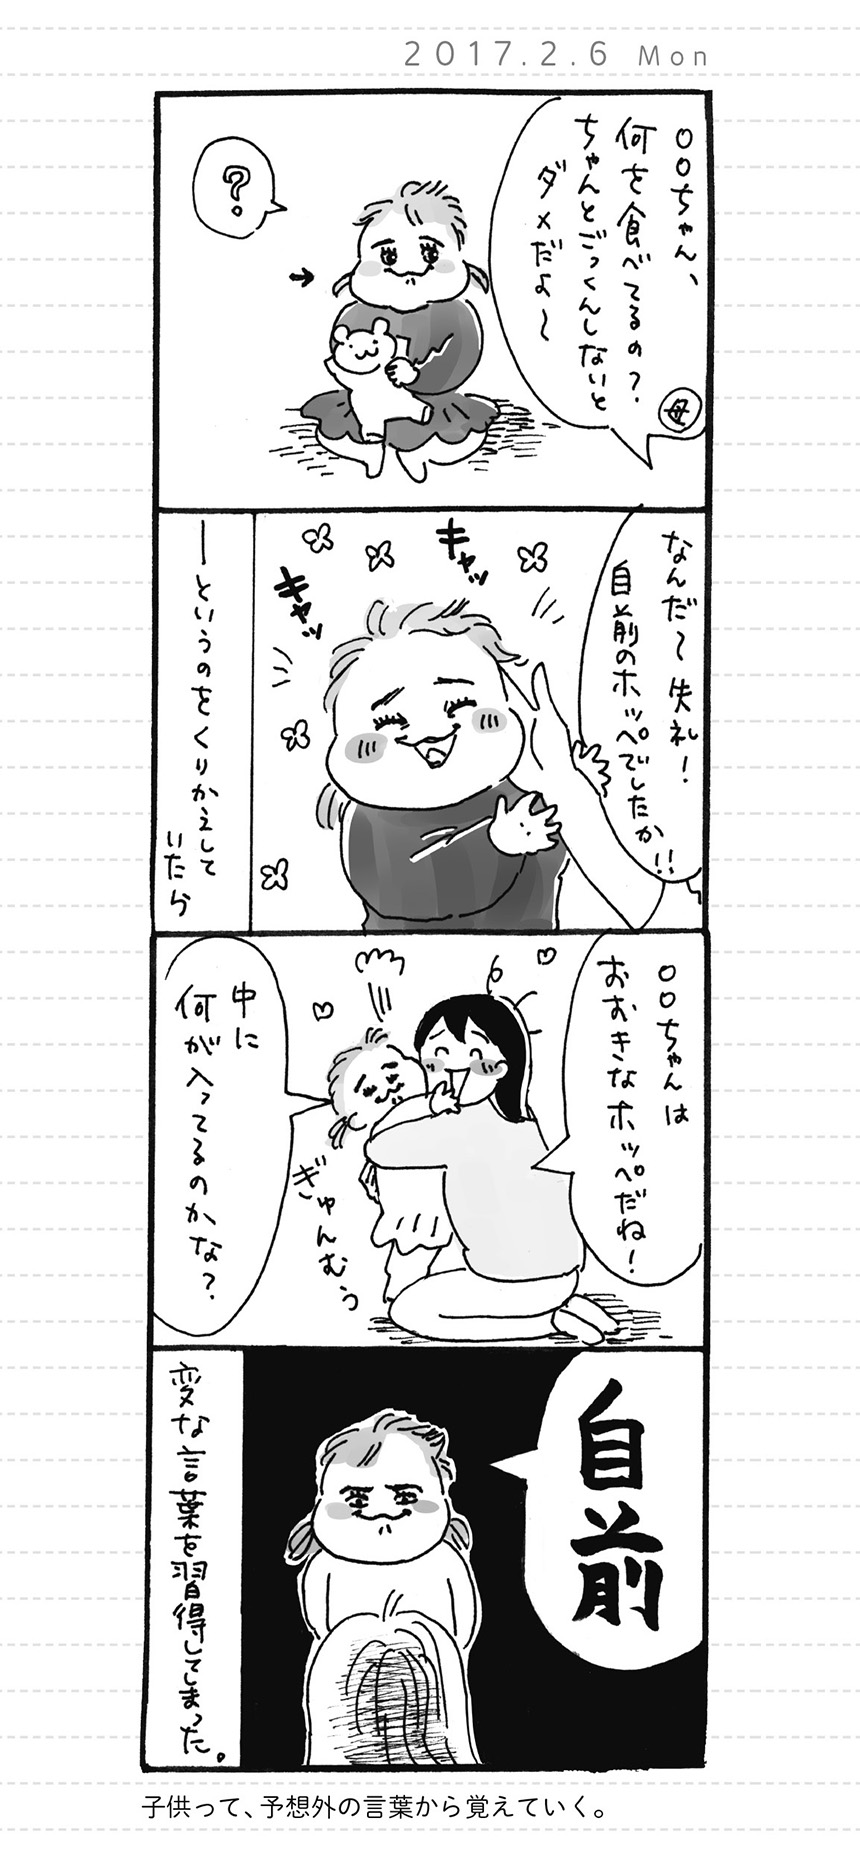 2017.2.6 Mon
○○ちゃん、
何を食べてるの？
ちゃんとごっくんしないと
ダメだよ〜
母
？
なんだ〜失礼！
自前のホッペでしたか！！
キャッ
キャッ
―というのをくりかえして
いたら
○○ちゃんは
おおきなホッペだね！
ぎゅんむぅ
中に
何が入ってるのかな？
自前
変な言葉を習得してしまった。
子供って、予想外の言葉から覚えていく。